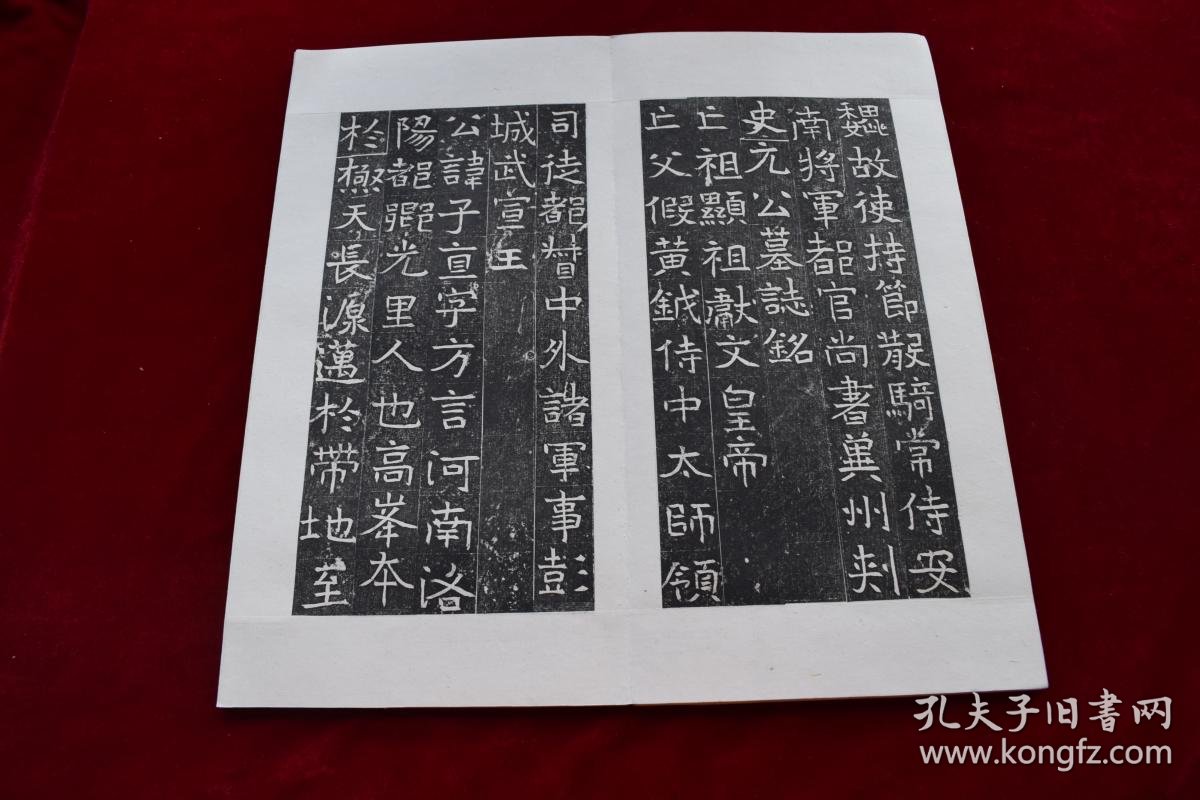 魏故使持節散騎常侍安
南將軍都官尚書兾州刾
史元公墓誌銘
亡祖顯祖獻文皇帝
亡父假黃鉞侍中太師領
司徒都督中外諸軍事彭
城武宣王
公諱子直字方言河南洛
陽都鄉光里人也高峯本
於極天長源邁於帶地至
孔夫子旧書网
www.kongfz.com